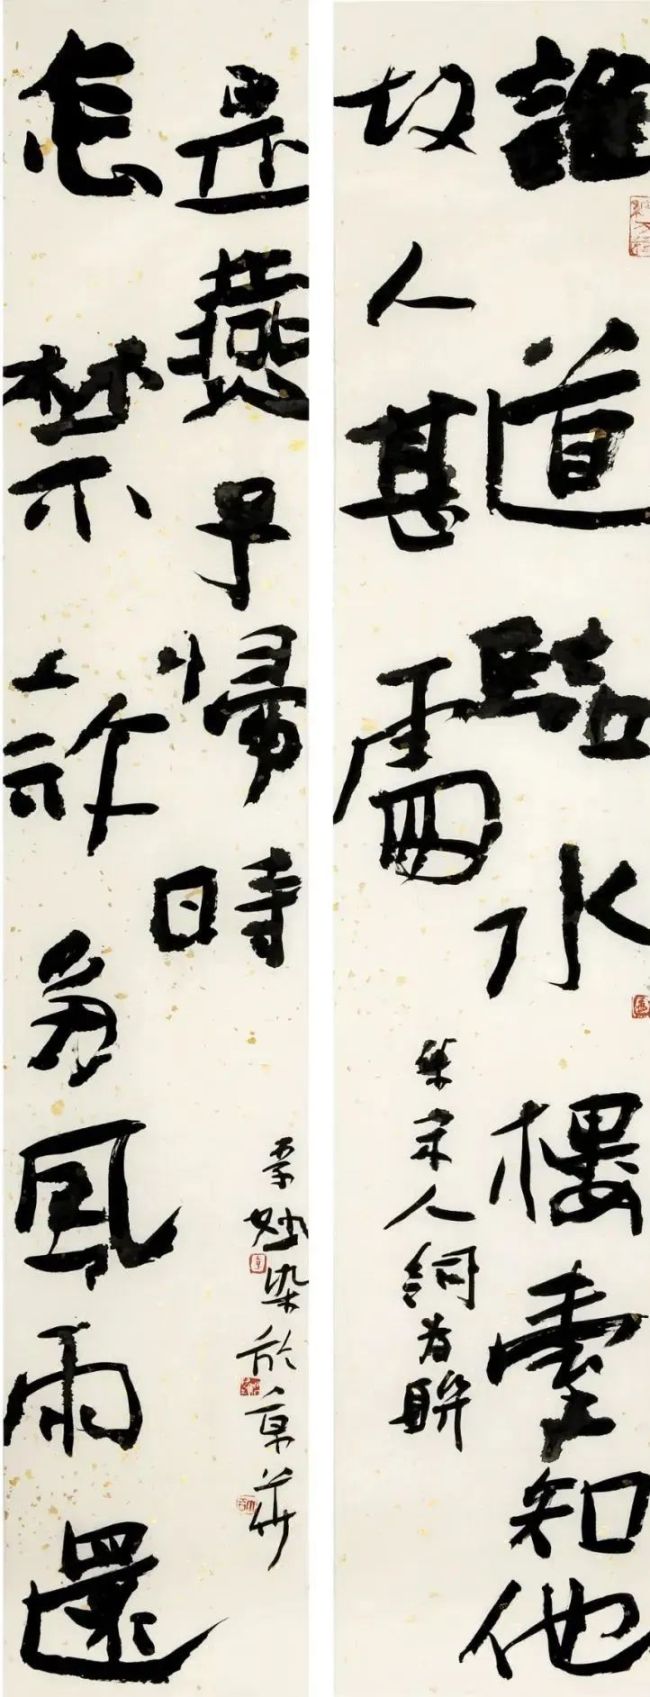 誰道臨水樓臺知他
故人甚處
集宋人詞為聯
怎禁許多風雨還
是燕子歸時
染於京華